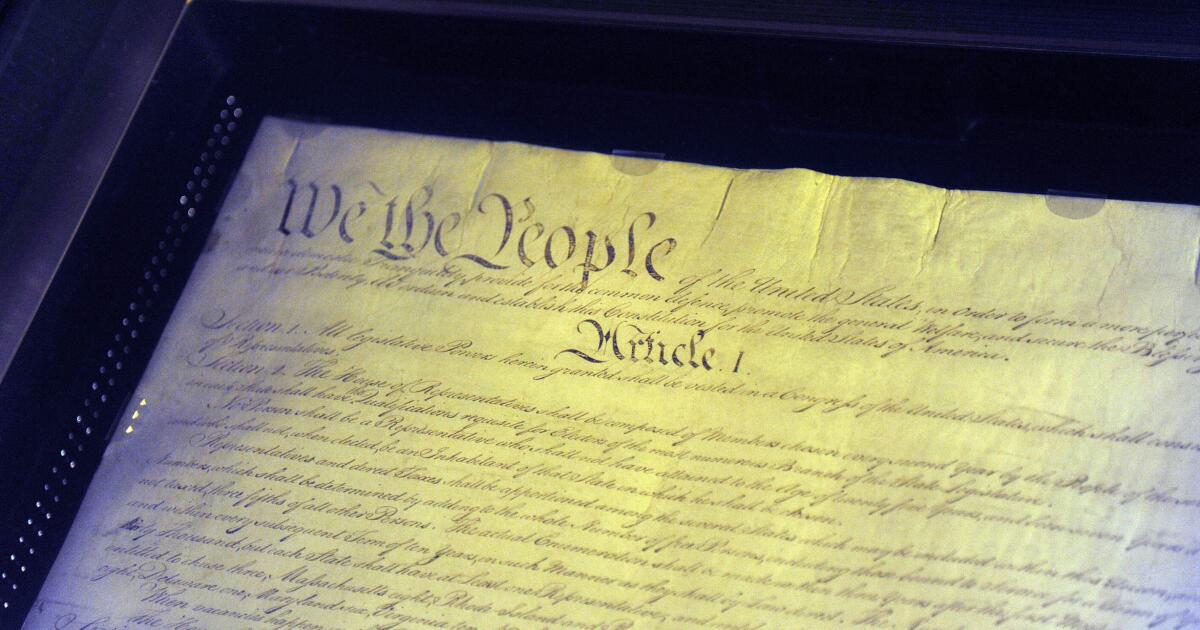 We the People of the United States, in Order to form a more
domestic Tranquility, provide for the common defence, promote the general Welfare, and secure the
and our Posterity, do ordain and establish this Constitution for the United States of America.
Article. I.
Section. 1. All legislative Powers herein granted shall be vested in a Congress of the United States, which shall
of Representatives.
Section. 2. The House of Representatives shall be composed of Members chosen every second Year by the People of the
in each State shall have the Qualifications requisite for Electors of the most numerous Branch of the State Legislature.
No Person shall be a Representative who shall not have attained to the Age of twenty five Years, and been seven Years
and who shall not, when elected, be an Inhabitant of that State in which he shall be chosen.
Representatives and direct Taxes shall be apportioned among the several States which may be included within this Union,
Numbers, which shall be determined by adding to the whole Number of free Persons, including those bound to Service for a Term
not taxed, three fifths of all other Persons. The actual Enumeration shall be made within three Years after the first
and within every subsequent Term of ten Years, in such Manner as they shall by Law direct. The
thirty Thousand, but each State shall have at Least one Representative; and
entitled to chuse three, Massachusetts eight, Rhode Island and
eight, Delaware one, Maryland six, Virginia ten
When vacancies happen
The